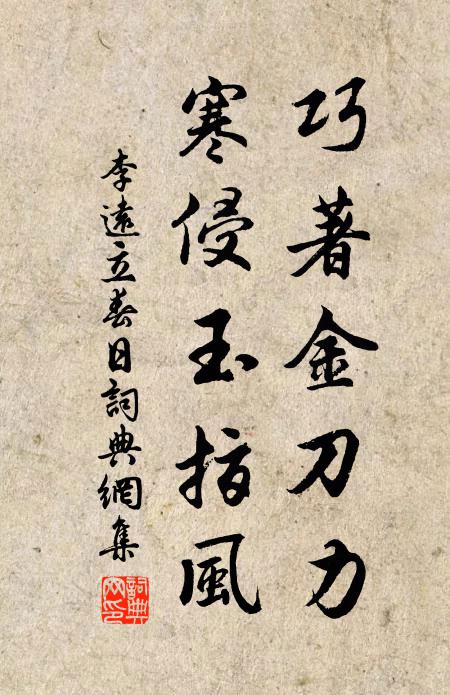 巧著金刀力
寒侵玉指風
李遠立春日詞典網集
詞典網印